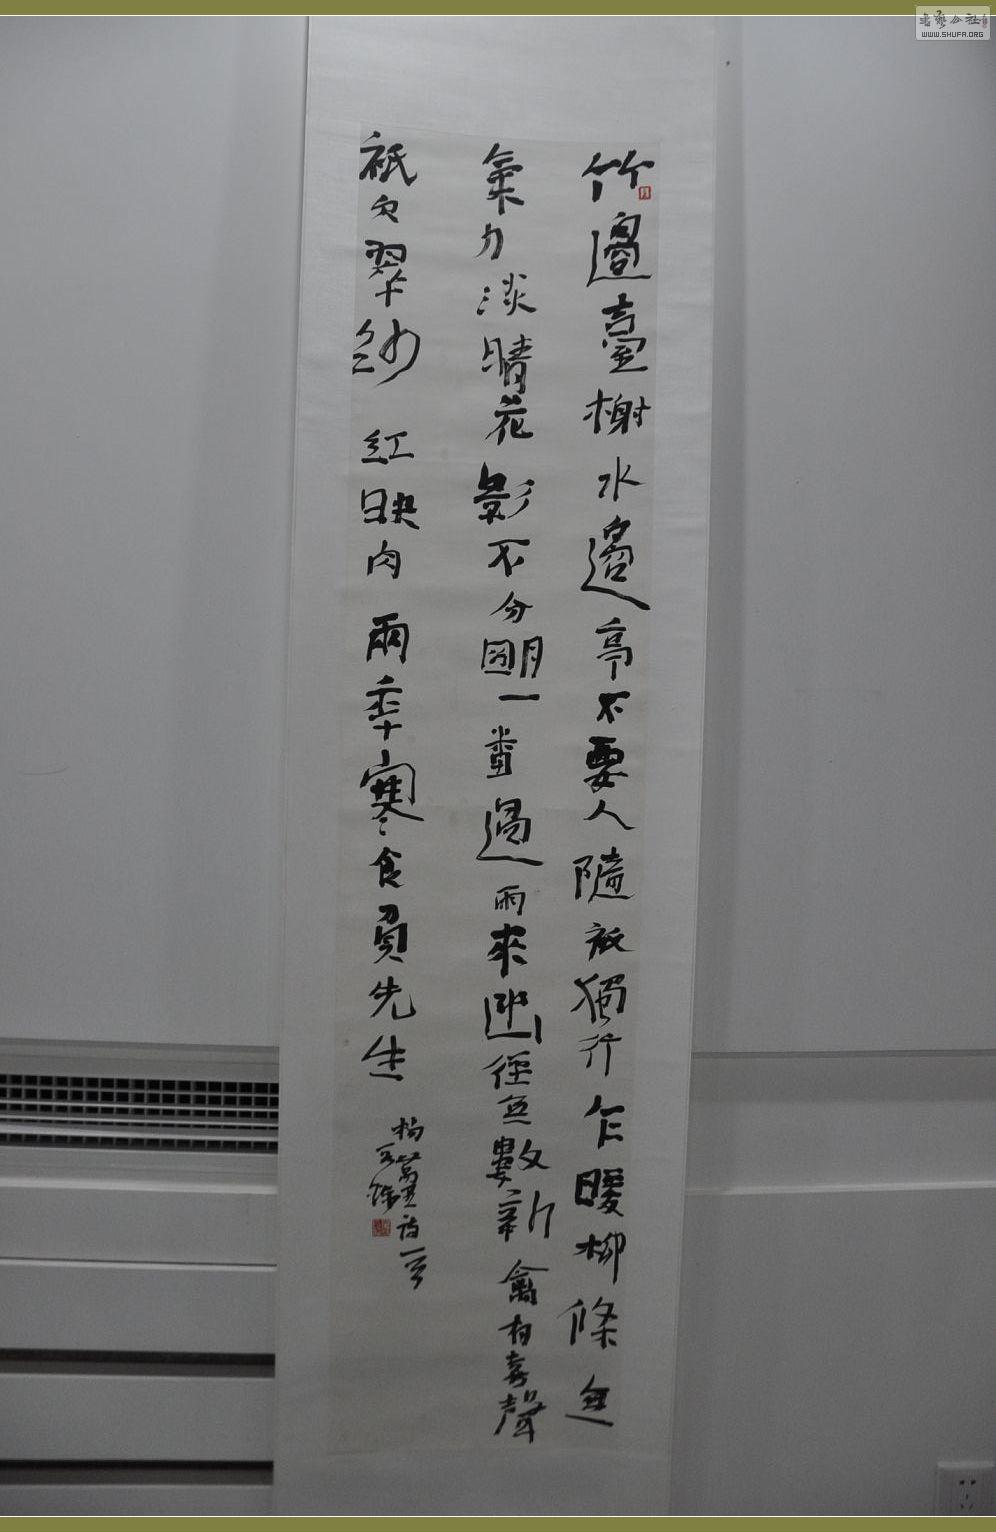 竹邊臺榭水邊亭不要人隨衹獨行乍暖柳條無
氣力淡晴花影不分明一番過雨來幽徑無數新禽有喜聲
衹欠翠紗紅映肉兩年寒食負先生
楊萬里詩一首
書藝公社
WWW.SHUFA.ORG